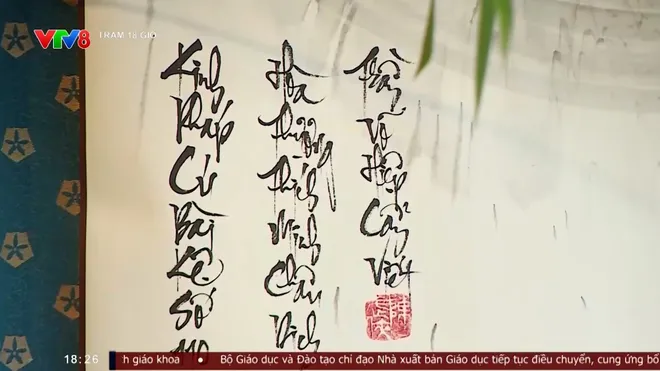 VTV8 TRẠM 18 GIỜ
Kinh
Pháp
Cú
Bài
Kệ
Số
110
Hòa
Thượng
Thích
Minh
Châu
Dịch
Trần
Võ
Hiệp
Cẩn
Viết
18:26 h giáo khoa • Bộ Giáo dục và Đào tạo chỉ đạo Nhà xuất bản Giáo dục tiếp tục điều chuyển, cung ứng bổ